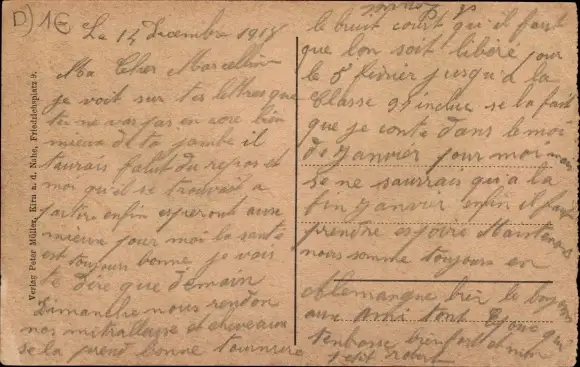 D) 1€
Le 14 Dicembre 1918
Ma Cher Marcellin
je voit sur tes lettres que
tu ne vas pas en core bien
mieux de ta jambe il
taurais falut du repos et
moi qu'il se trouvait a
partire enfin esperont au
mieux pour moi la santé
est toujours bonne je vais
te dire que demain
Dimanche nous rendon
nos mitrailleuse et cheveaux
se la prend bonne tournure
le bruit court qu'il faut
que lon soit libéré pour
le 5 fevrier jusqu'a la
Classe 99 inclue se la fait
que je conte dans le moi
de Janvier pour moi
se ne saurrais qu'a la
fin Janvier enfin il faut
prendre espoire Maintenant
nous somme toujours en
Allemangne
ami tont
tenbrasse bien fort
petit robert
Verlag Peter Müller, Kirn a. d. Nahe, Friedrichsplatz 9.